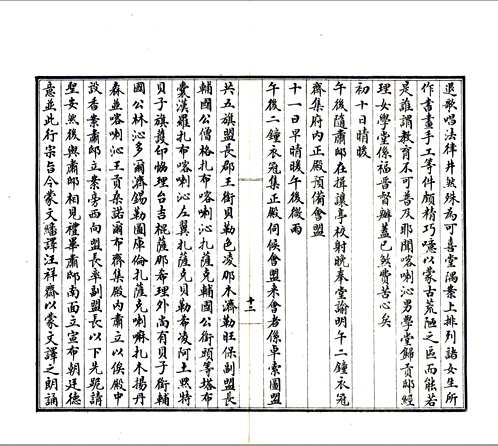 退歌唱法律井然殊為可喜堂隅案上排列諸女生所
作書畫手工等件頗精巧噫以蒙古荒陋之區而能若
是誰謂教育不可普及耶聞喀喇沁男學堂歸貢邸經
理女學堂係福晉督辦蓋已煞費苦心矣
初十日晴暖
午後隨肅邸在揖讓亭校射晚奉堂諭明午二鐘衣冠
齊集府內正殿預備會盟
十一日早晴暖午後微雨
午後二鐘衣冠集正殿伺候會盟來會者係卓索圖盟
十二
共五旗盟長郡王銜貝勒色凌那木濟勒旺保副盟長
輔國公僧格扎布喀喇沁扎薩克輔國公銜頭等塔布
囊漢羅扎布喀喇沁左翼扎薩克貝勒希凌阿土默特
貝子旗護印協理台吉棍薩那希理外尚有貝子銜輔
國公林沁多爾濟錫勒圖庫倫扎薩克喇嘛扎木揚丹
森並喀喇沁王貢桑諾爾布齊集殿內肅立以俟殿中
設香案肅邸立案旁西向盟長率副盟長以下先跪請
聖安然後與肅邸相見禮畢肅邸南面立宣布朝廷德
意並此行宗旨令蒙文繙譯汪祥齋以蒙文譯之朗誦